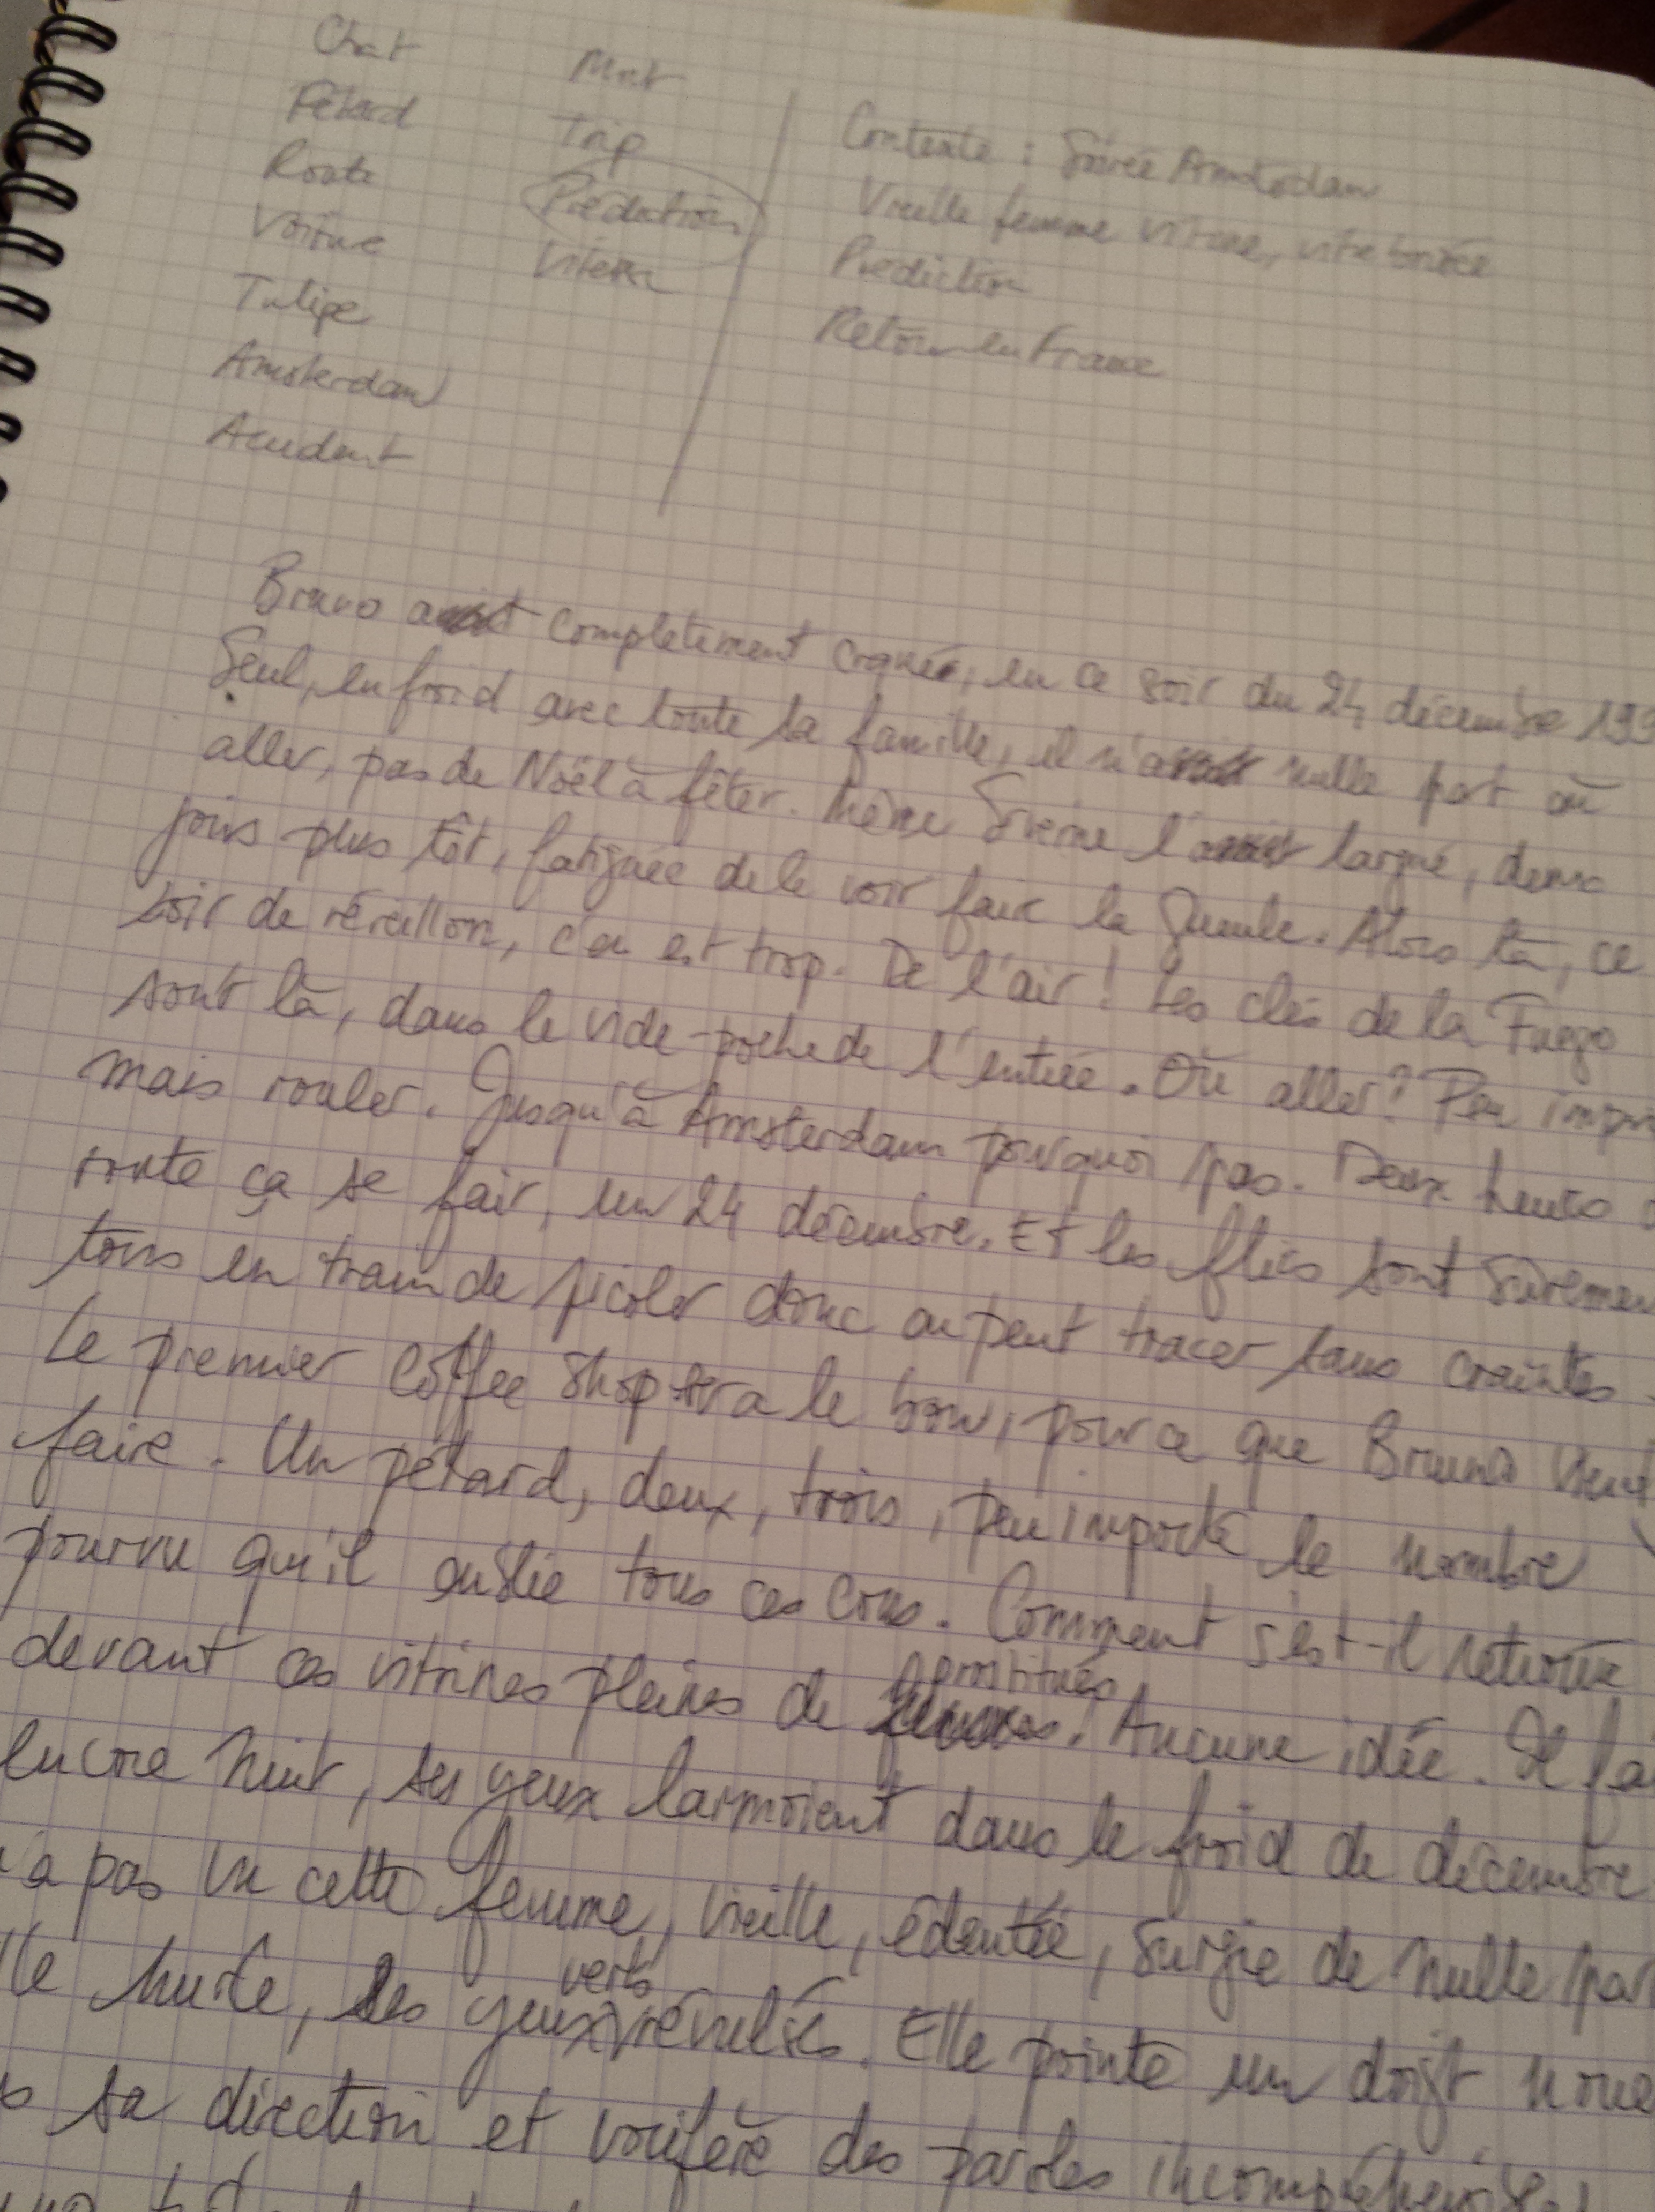 Chat
Pétard
Route
Voiture
Tulipe
Amsterdam
Accident
Mort
Trip
Prédiction
Vitesse
Contexte : Soirée Amsterdam
Vieille femme vitrine, vitre brisée
Prédiction
Retour en France
Bruno a complètement craqué, en ce soir du 24 décembre 199
Seul, en froid avec toute sa famille, il n'a nulle part où
aller, pas de Noël à fêter. Même l'a largué, deux
jours plus tôt, fatiguée de le voir faire la gueule. Alors là, ce
soir de réveillon, c'en est trop. De l'air ! Les clés de la Fuego
sont là, dans le vide-poche de l'entrée. Où aller ? Peu impor
mais rouler. Jusqu'à Amsterdam pourquoi pas. Deux heures d
route ça se fait, un 24 décembre. Et les flics sont sûremen
tous en train de picoler donc on peut tracer sans craintes.
Le premier coffee shop sera le bon, pour ce que Bruno veut
faire. Un pétard, deux, trois, peu importe le nombre
pourvu qu'il oublie tous ces cons. Comment s'est-il retrouvé
devant ces vitrines pleines de prostitués. Aucune idée. Il fai
encore nuit, ses yeux larmoient dans le froid de décembre
'a pas vu cette femme, vieille, édentée, surgie de nulle par
lle hurle, les yeux verts révulsés. Elle pointe un doigt noue
s sa direction et vocifère des paroles incompréhensibles